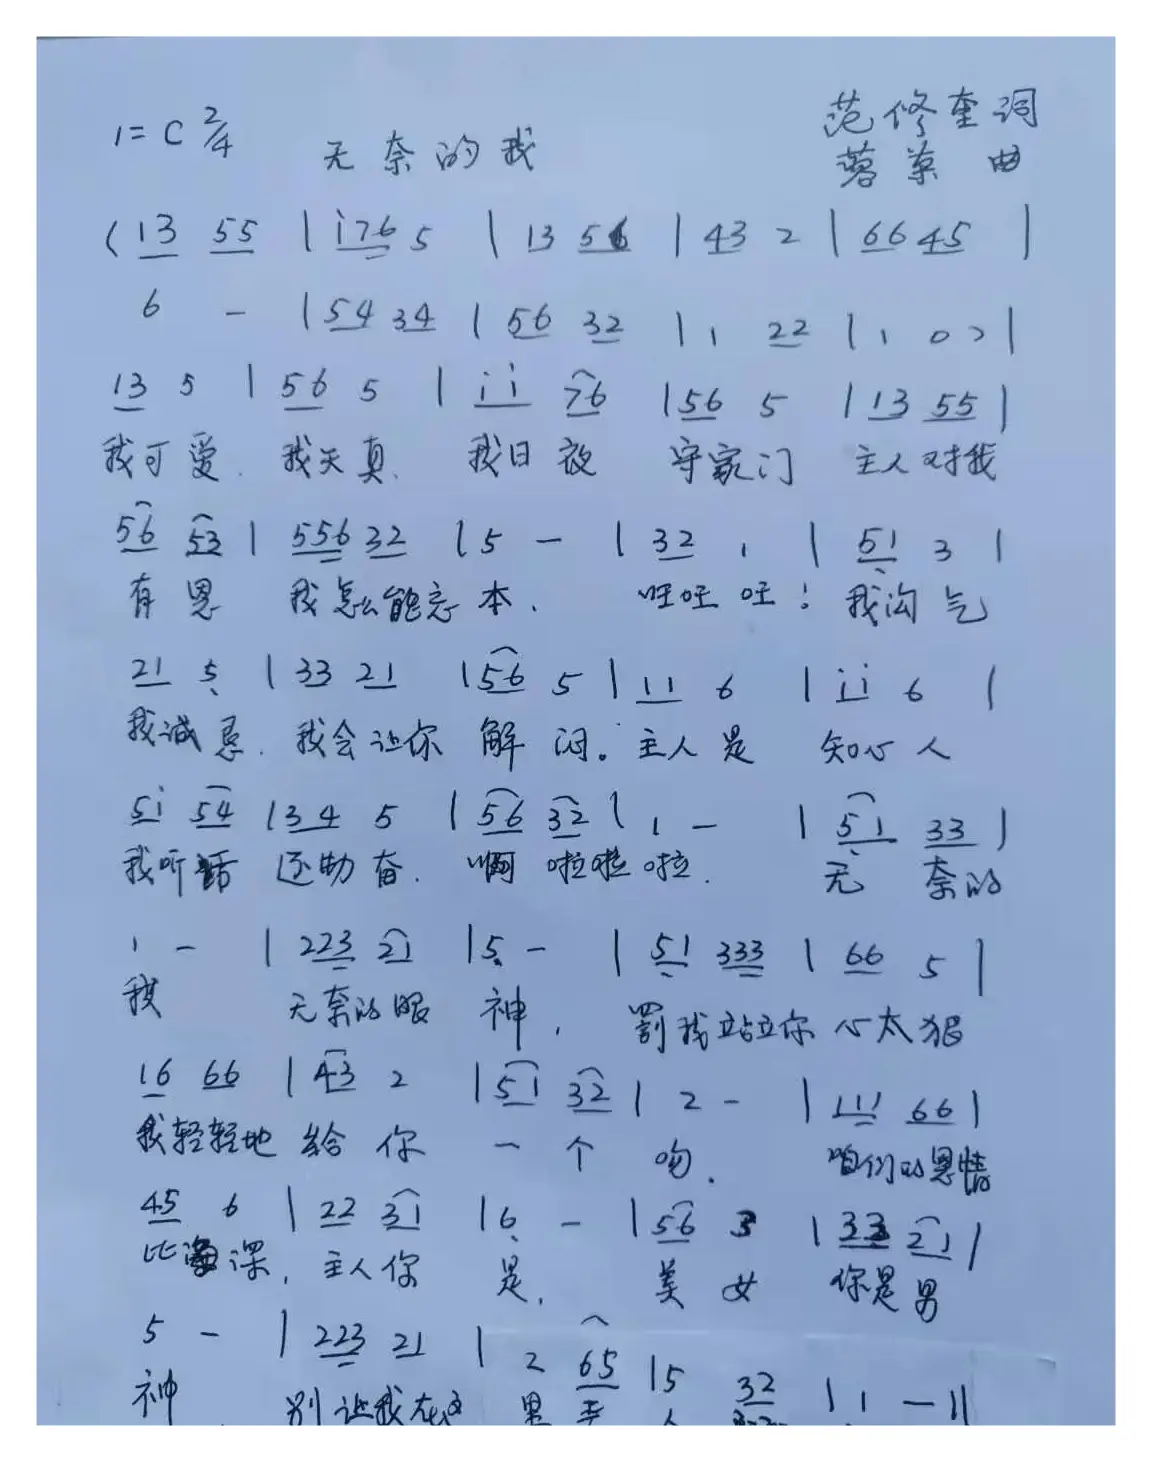 1=C 2/4
无奈的我
范修奎词
曲
(13 55 | i76 5 | 13 56 | 43 2 | 66 45 |
6 - | 54 34 | 56 32 | 1 22 | 1 0 ) |
13 5 | 56 5 | ii 76 | 56 5 | 13 55 |
我可爱. 我天真. 我日夜 守家门 主人对我
56 53 | 556 32 | 5 - | 32 1 | 51 3 |
有恩 我怎么能忘本. 旺旺旺! 我淘气
21 5 | 33 21 | 56 5 | 11 6 | ii 6 |
我诚恳. 我会让你 解闷。主人是 知心人
5i 54 | 34 5 | 56 32 | 1 - | 51 33 |
我听话 还勤奋. 啊 啦啦啦. 无 奈的
1 - | 223 21 | 5 - | 51 333 | 66 5 |
我 无奈的眼 神, 罚我站立你 心太狠
16 66 | 43 2 | 51 32 | 2 - | 111 66 |
我轻轻地 给你 一个 吻. 咱们的恩情
45 6 | 22 31 | 6 - | 56 3 | 33 21 |
比海深, 主人你 是, 美女 你是男
5 - | 223 21 | 2 65 | 5 32 | 1 - ||
神 别让我在这